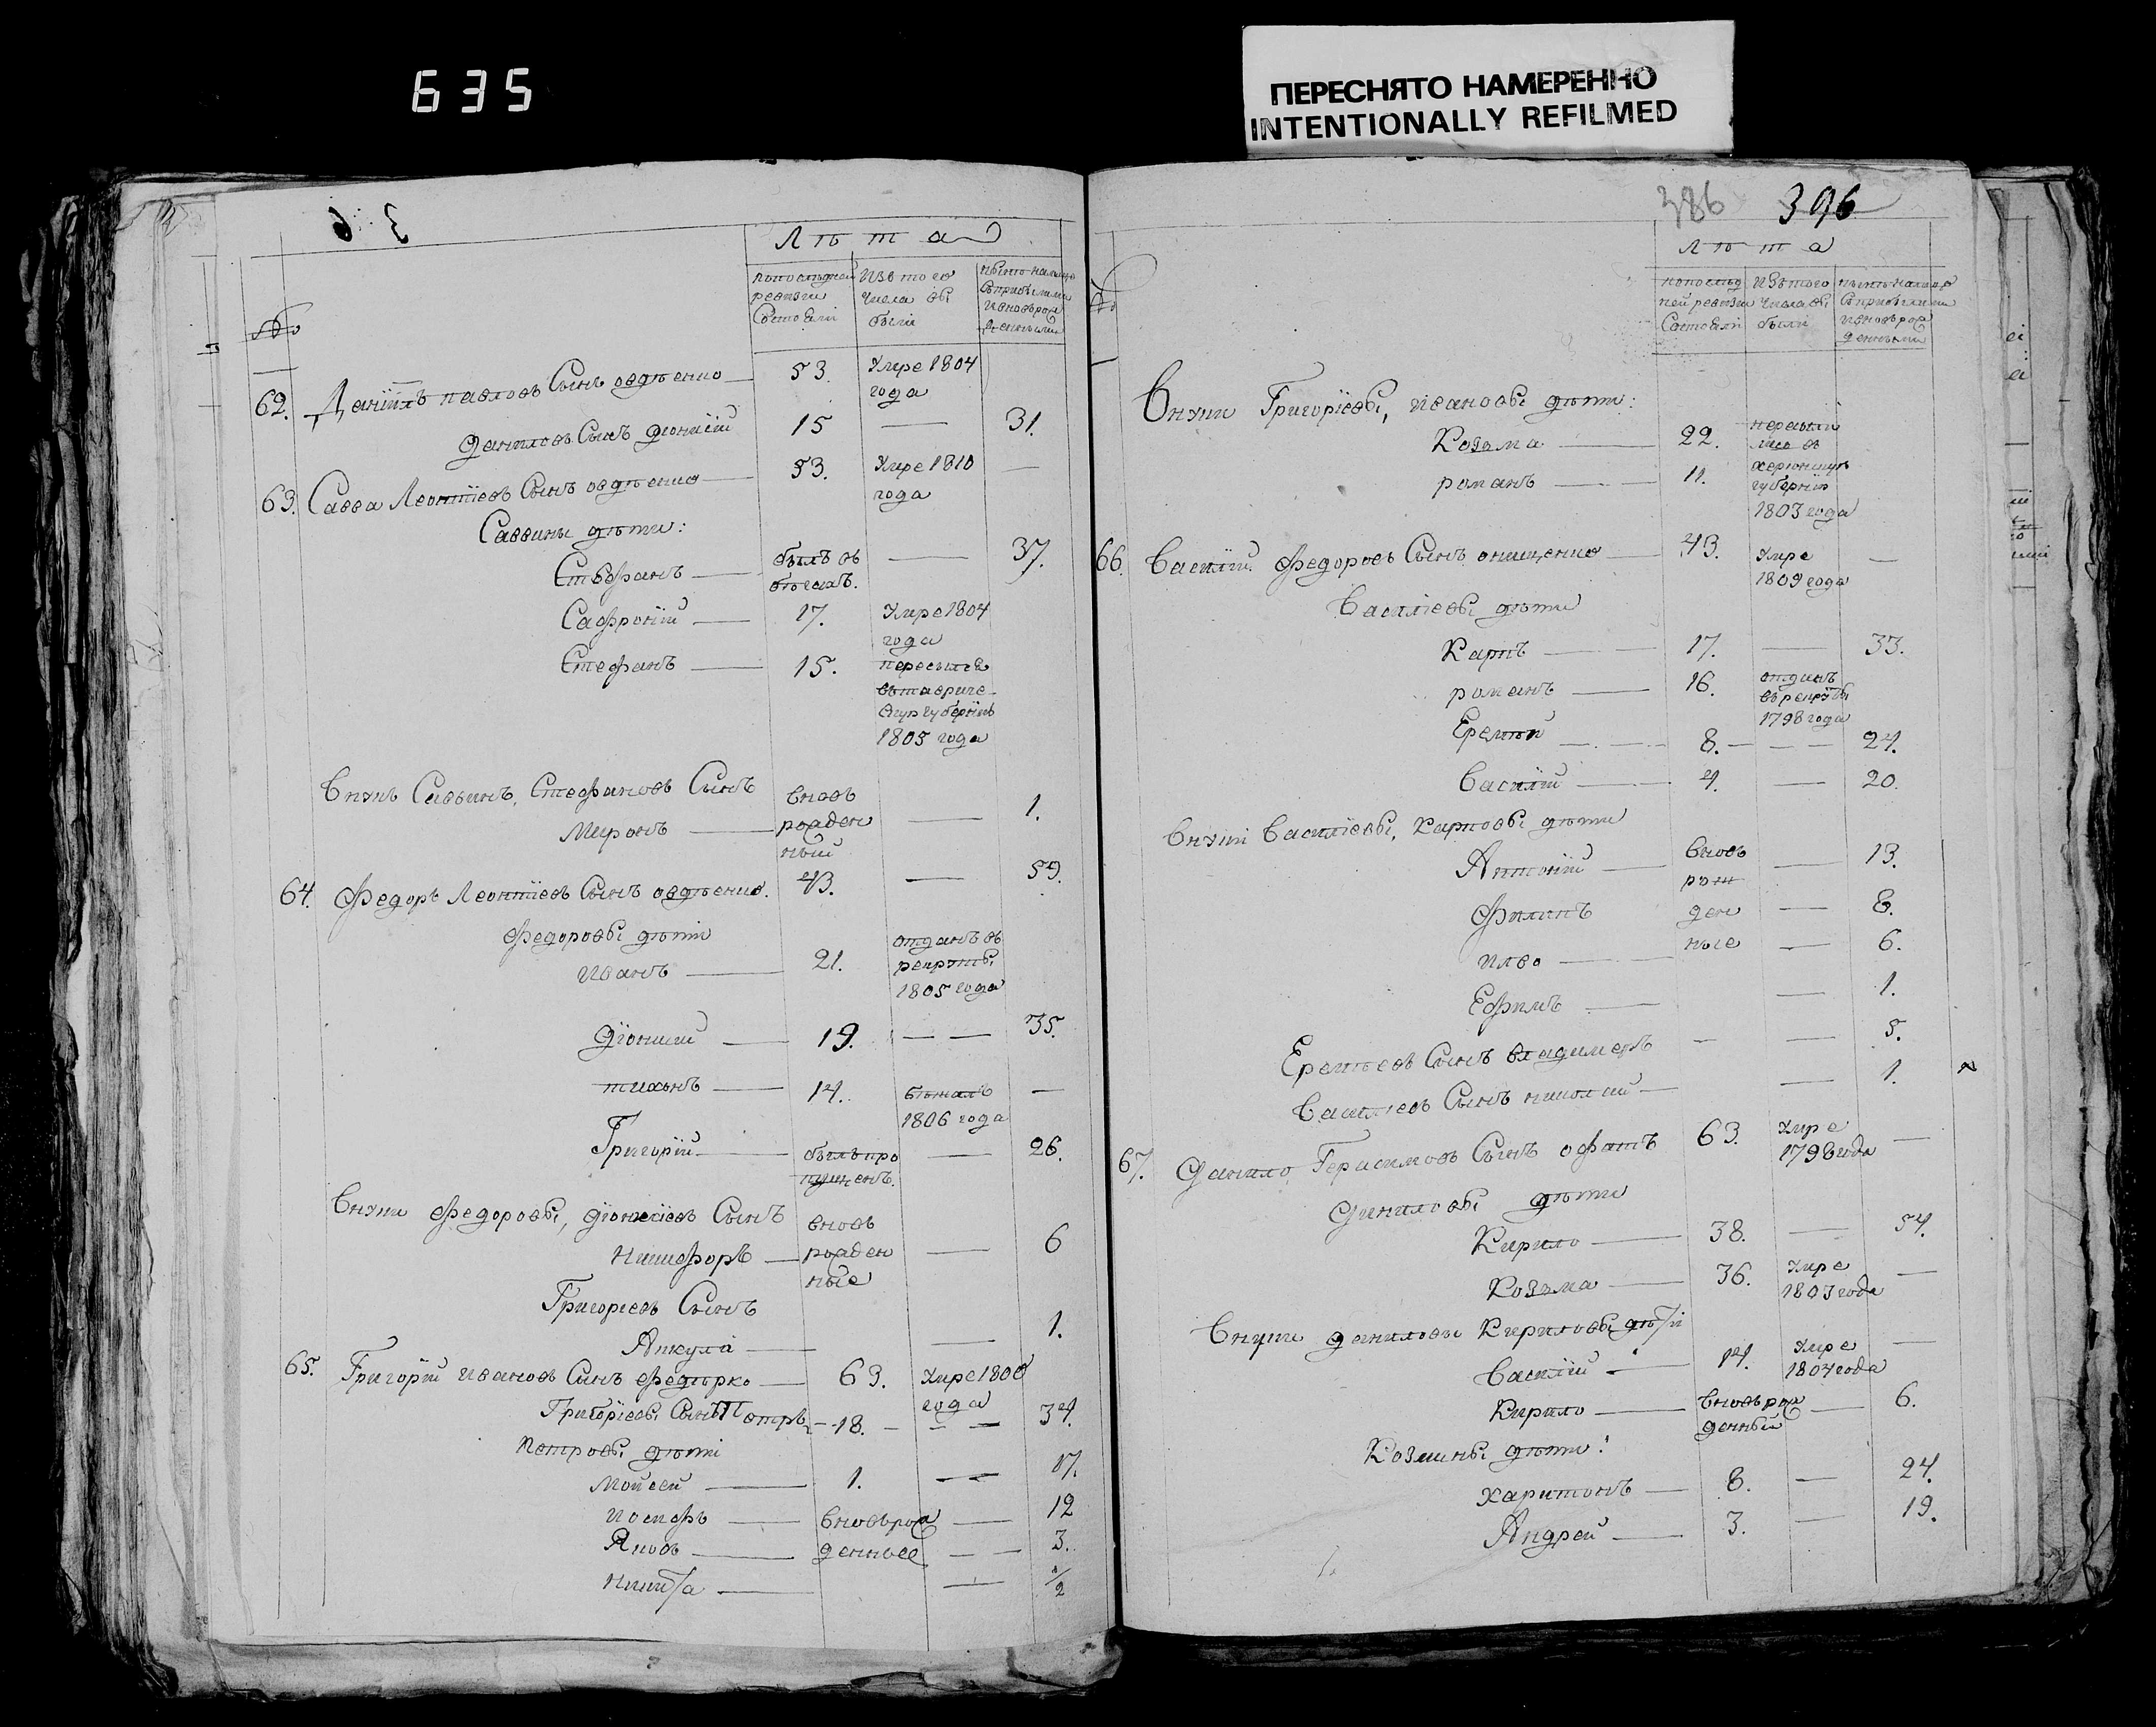 635
ПЕРЕСНЯТО НАМЕРЕННО
INTENTIONALLY REFILMED
386 396
Лѣта
№
по последней ревизии Состояли
Изъ того числа выбыли
ныне налицо Съприбылыми и вновьрожденными
62. Данїилъ павловъ Сынъ овдѣенко 53. Умре 1804 года
даниловъ Сынъ дионисїй 15 — 31.
63. Савва Леонтїевъ Сынъ овдѣенко 53. Умре 1810 года —
Саввины дѣти:
Стефанъ — былъ въ бѣгахъ. — 37.
Сафронїй — 17. Умре 1804 года
Стефанъ — 15. переселенъ въ таврическую губернїю 1805 года
Внукъ Саввинъ, Стефановъ Сынъ
Миронъ — вновь рожденный — 1.
64. Федоръ Леонтїевъ Сынъ овдѣенко. 43. — 59.
Федоровы дѣти
Иванъ — 21. отданъ въ рекруты 1805 года
Дїонисий — 19. — — 35.
тихонъ — 14. бежалъ 1806 года —
Григорїй — былъ пропущенъ. — 26.
Внуки Федоровы, дїонисїевъ Сынъ
Никифоръ — вновь рожденные — 6
Григорїевъ Сынъ
Акула — — 1.
65. Григорїй ивановъ Сынъ Федорко — 63. Умре 1808 года
Григорїевъ Сынъ Петръ — 18. — — — 34.
Петровы дѣти
Мойсей — 1. — — 17.
Иосифъ — вновьрожденные — 12
Яковъ — — — 3.
Никита — — 1/2
Лѣта
№
по последней ревизии Состояли
Изътого числа выбыли
ныне налицо Съприбылыми и вновьрожденными
Внуки Григорїевы, ивановы дѣти:
Козьма — 22.
романъ — 11.
херсонскую губернїю 1803 года
66. Василїй Федоровъ Сынъ онищенко — 43. Умре 1809 года —
Василїевы дѣти
Карпъ — 17. — 33.
романъ — 16. отданъ въ рекруты 1798 года
Еремѣй — 8. — — — 24.
Василїй — 4. — 20.
Внуки Василїевы, Карповы дѣти
Антонїй — вновь — 13.
рож
Филипъ ден — 8.
илво — ные — 6.
Ефимъ — — 1.
Еремѣевъ Сынъ владимеръ — — 5.
Василїевъ Сынъ николай — — 1.
67. Данило Герасимовъ Сынъ 63. Умре 1798 года —
Даниловы дѣти
Кирило — 38. — 54.
Козьма — 36. Умре 1803 года —
Внуки даниловы Кириловы дѣти
Василїй — 14. Умре 1804 года —
Кирило — вновьрожденный — 6.
Козмины дѣти:
харитонъ — 8. — 24.
Андрей — 3. — 19.